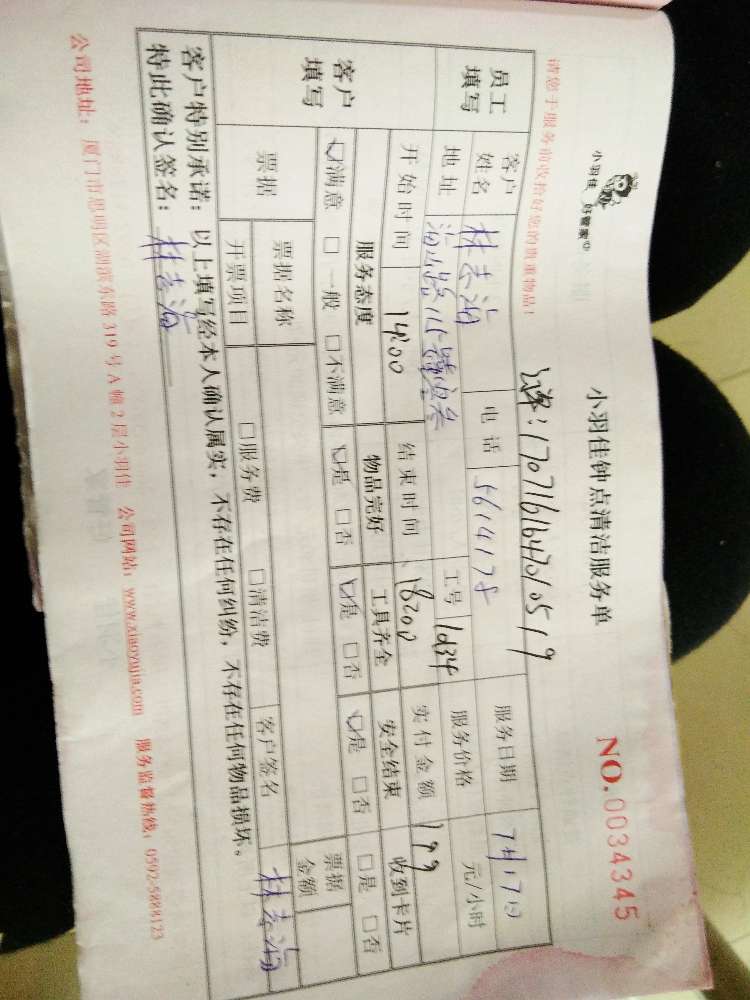 小羽佳 好管家
小羽佳钟点清洁服务单
NO.0034345
请您于服务前收拾好您的贵重物品！
1707161647010519
员工填写
客户姓名 林志海 电话 5614178 服务日期 7月17日
地址 工号 1d34 服务价格 元/小时
开始时间 14:00 结束时间 18:00 实付金额 199
客户填写
服务态度 物品完好 工具齐全 安全结束 收到卡片
☑满意 □一般 □不满意 ☑是 □否 ☑是 □否 ☑是 □否 □是 □否
票据 票据名称 □服务费 □清洁费 票据金额
开票项目 客户签名 林志海
客户特别承诺：以上填写经本人确认属实，不存在任何纠纷，不存在任何物品损坏。
特此确认签名：林志海
公司地址：厦门市思明区湖滨东路319号A幢2层小羽佳 公司网站：www.xiaoyujia.com 服务监督热线：0592-5888123